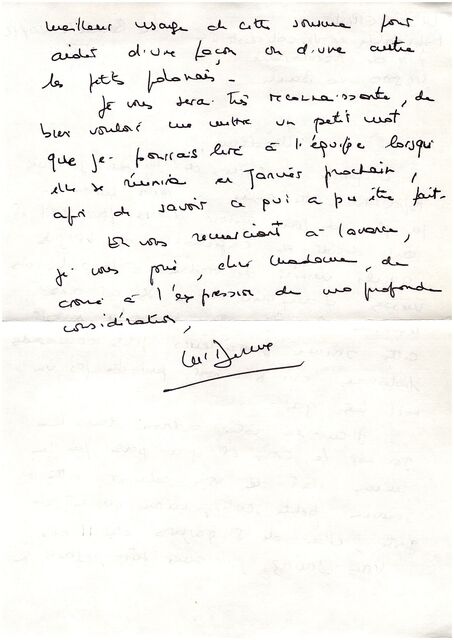 meilleur usage de cette somme pour
aider d'une façon ou d'une autre
les petits polonais -
Je vous serai très reconnaissante, de
bien vouloir me mettre un petit mot
que je pourrais lire à l'équipe lorsqu'
elle se réunira en Janvier prochain,
afin de savoir ce qui a pu être fait -
En vous remerciant à l'avance,
je vous prie, chère Madame, de
croire à l'expression de ma profonde
considération,